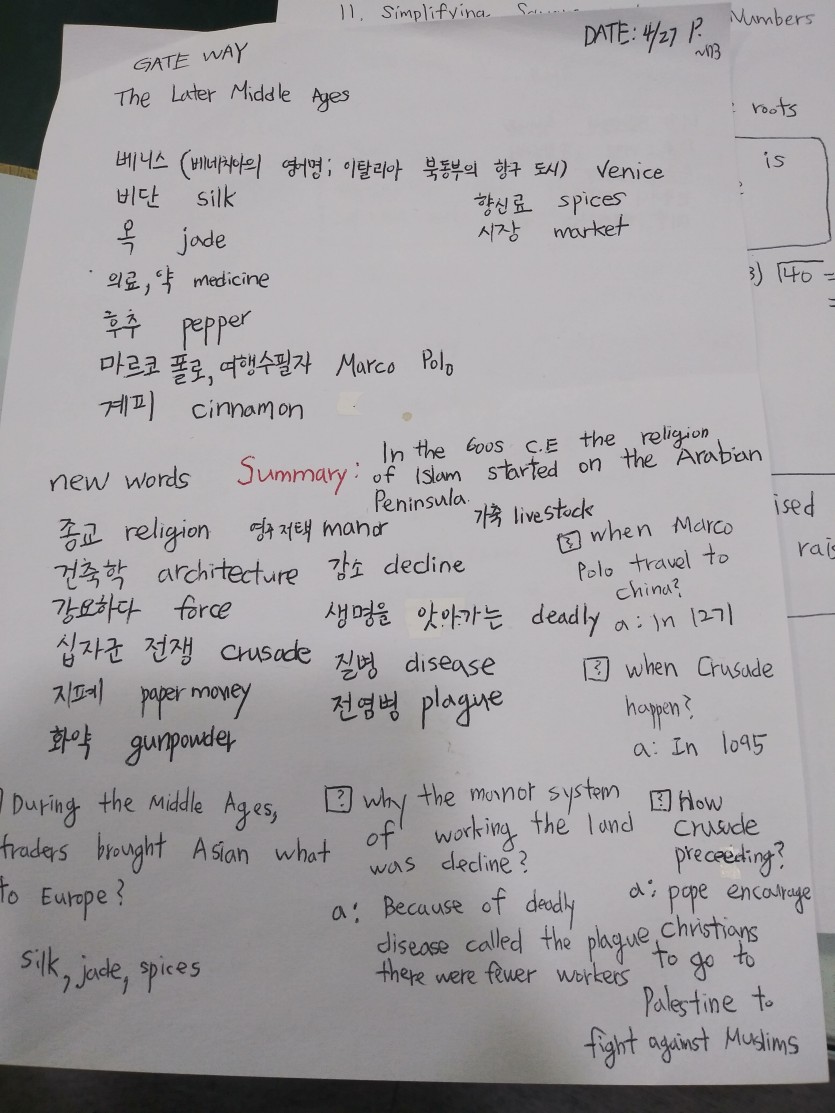 11. Simplifying Numbers
roots
is
3) √40 =
=
ised
rais
GATE WAY
DATE: 4/27 P.
~173
The Later Middle Ages
베니스 (베네치아의 영어명; 이탈리아 북동부의 항구 도시) Venice
비단 silk
향신료 spices
옥 jade
시장 market
의료, 약 medicine
후추 pepper
마르코 폴로, 여행수필자 Marco Polo
계피 cinnamon
new words
Summary: In the 600s C.E the religion
of Islam started on the Arabian
Peninsula.
종교 religion
영주저택 manor
가축 livestock
건축학 architecture
감소 decline
강요하다 force
생명을 앗아가는 deadly
십자군 전쟁 crusade
질병 disease
지폐 paper money
전염병 plague
화약 gunpowder
? when Marco
Polo travel to
china?
a: In 1271
? when Crusade
happen?
a: In 1095
During the Middle Ages,
traders brought Asian what
to Europe?
silk, jade, spices
? why the manor system
of working the land
was decline?
a: Because of deadly
disease called the plague,
there were fewer workers
? How
crusade
preceeding?
a: pope encourage
Christians
to go to
Palestine to
fight against Muslims